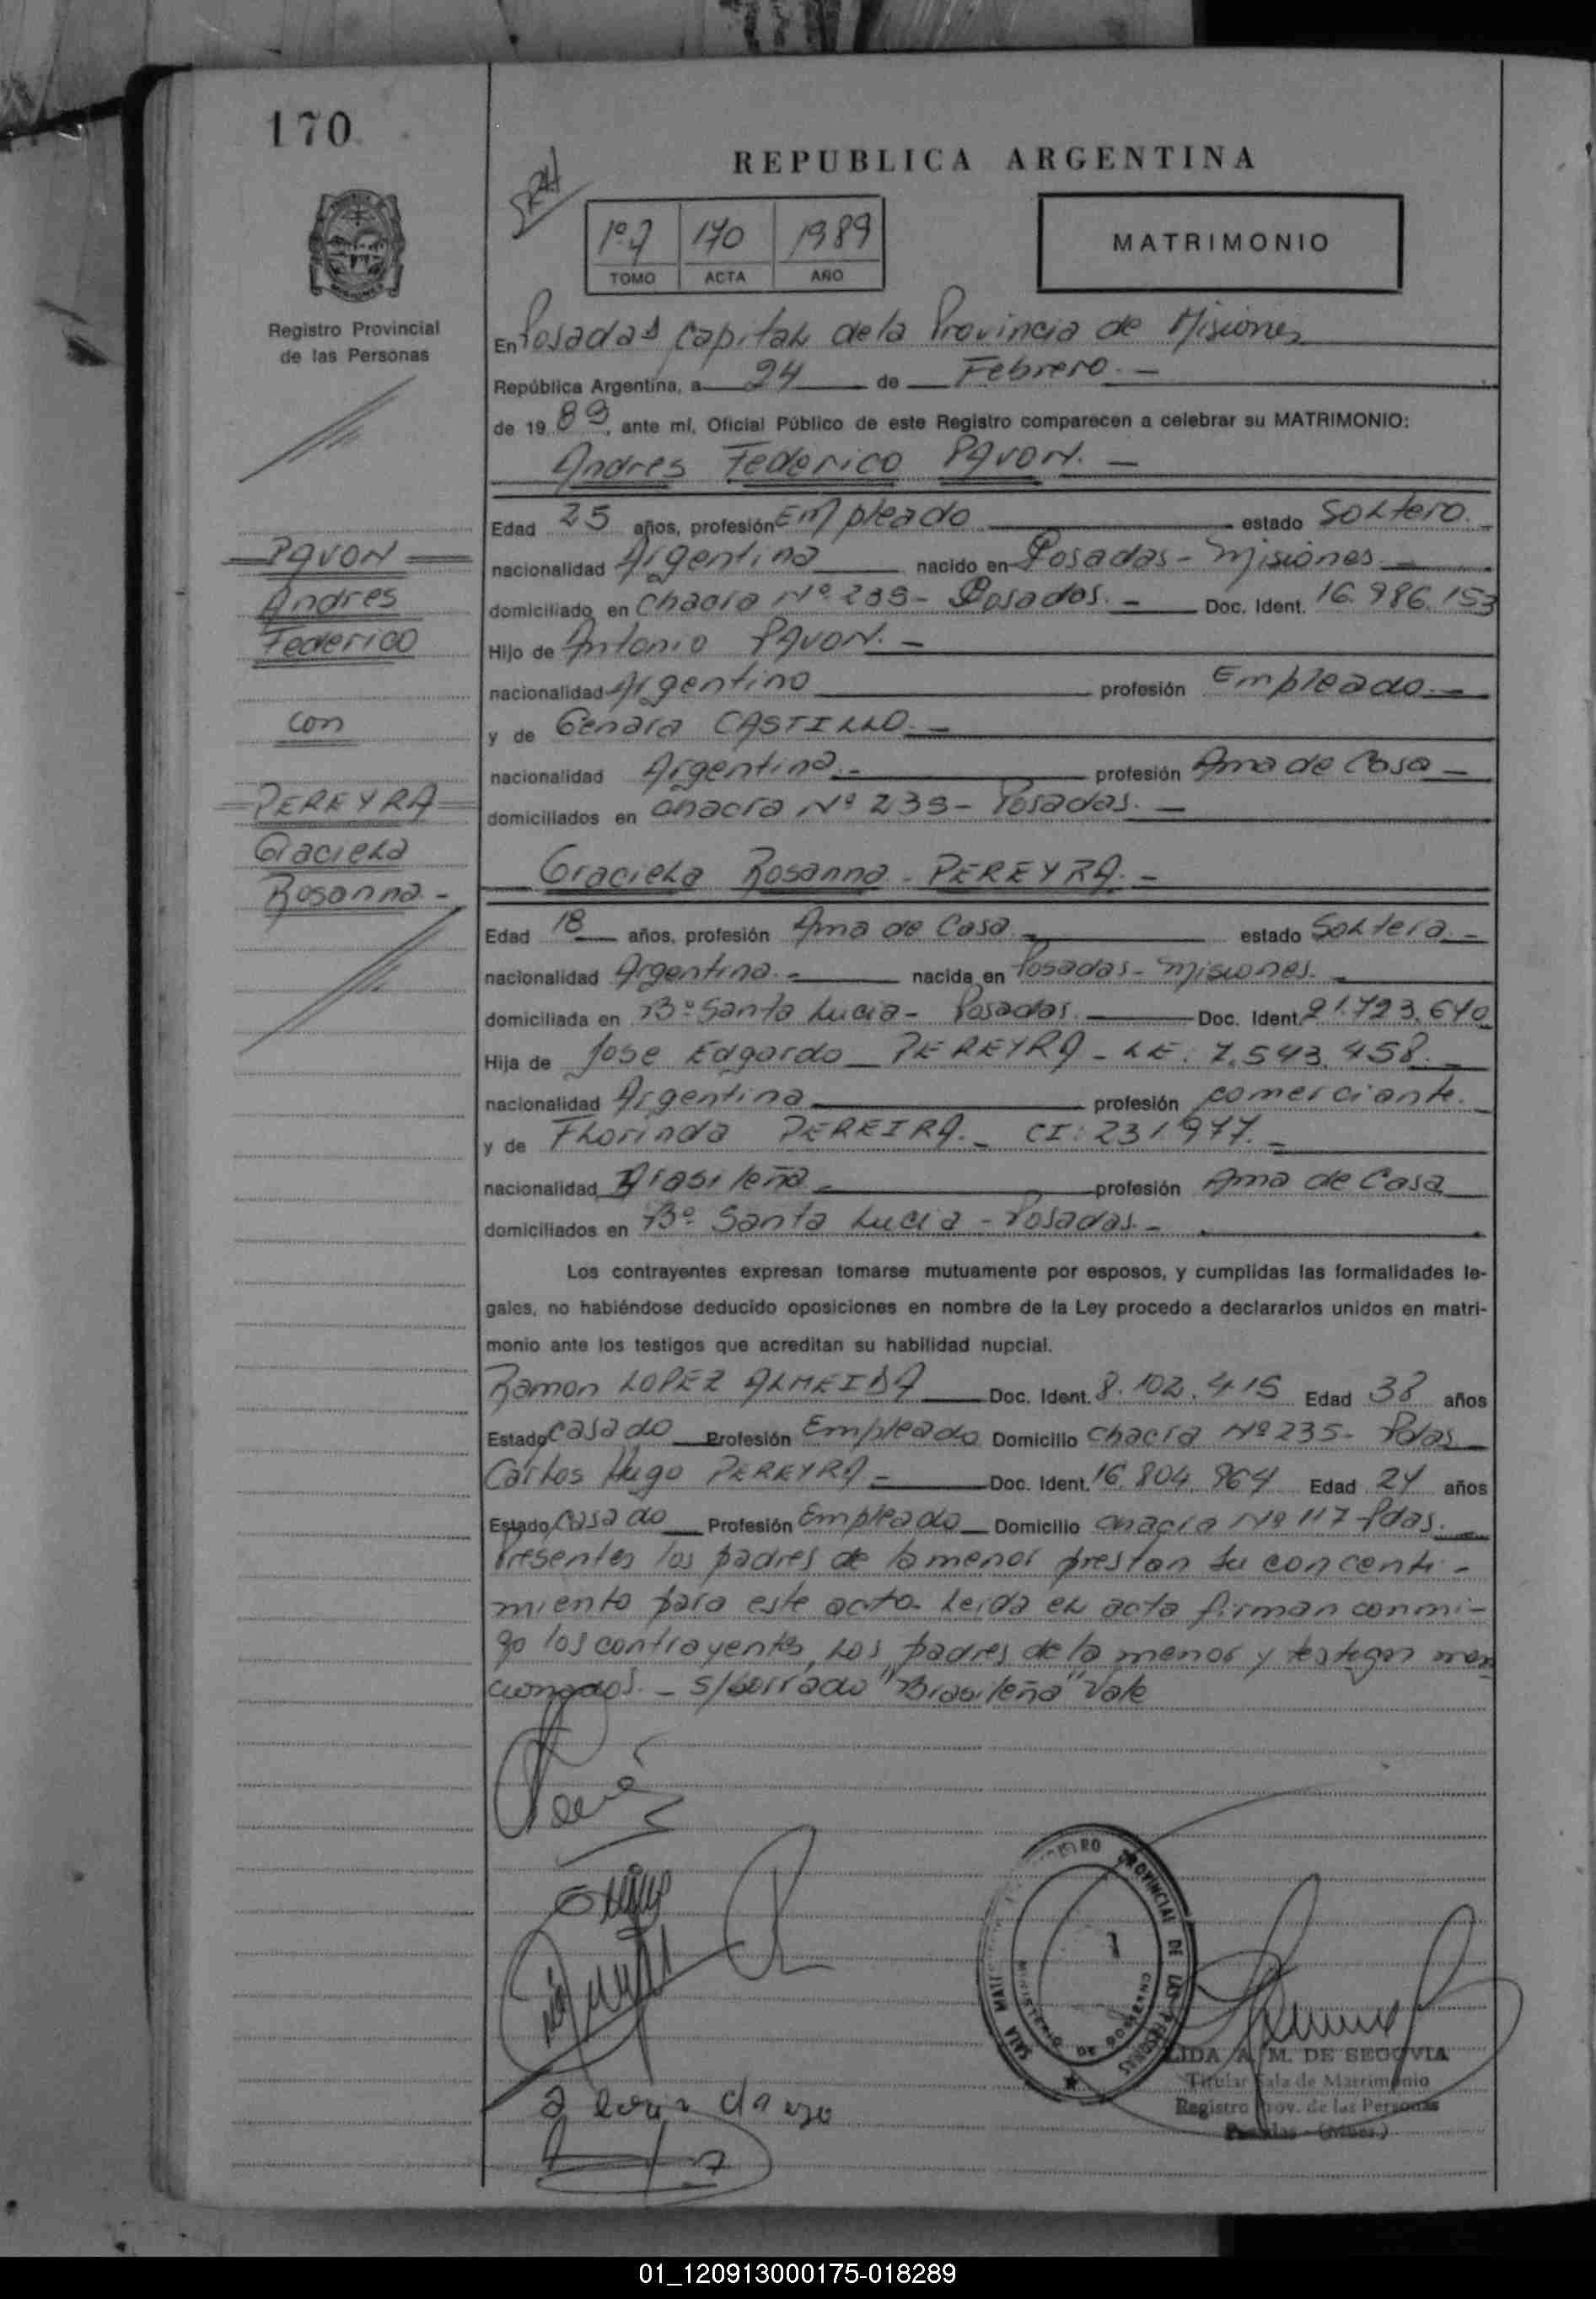 170
REPUBLICA ARGENTINA
170 1989
TOMO ACTA AÑO
MATRIMONIO
Registro Provincial
de las Personas
En Posadas capital de la Provincia de Misiones
República Argentina, a 24 de Febrero.-
de 1989, ante mí, Oficial Público de este Registro comparecen a celebrar su MATRIMONIO:
Andres Federico PAVON.-
PAVON
Andres
Federico
con
PEREYRA
Graciela
Rosanna-
Edad 25 años, profesión Empleado estado Soltero.-
nacionalidad Argentina nacido en Posadas- Misiones
domiciliado en Chacra Nº 239- Posadas.- Doc. Ident. 16.986.153
Hijo de Antonio PAVON.-
nacionalidad Argentino profesión Empleado.-
y de Genara CASTILLO.-
nacionalidad Argentina.- profesión Ama de Casa-
domiciliados en chacra Nº 239- Posadas.-
Graciela Rosanna PEREYRA.-
Edad 18 años, profesión Ama de Casa estado Soltera.-
nacionalidad Argentina.- nacida en Posadas- Misiones.
domiciliada en Bº Santa Lucia- Posadas. Doc. Ident. 21.723.640
Hija de Jose Edgardo PEREYRA- LE: 7.543.458.-
nacionalidad Argentina profesión comerciante.
y de Florinda PEREIRA.- CI: 231.977.-
nacionalidad Brasileña profesión Ama de Casa
domiciliados en Bº Santa Lucia- Posadas.-
Los contrayentes expresan tomarse mutuamente por esposos, y cumplidas las formalidades le-
gales, no habiéndose deducido oposiciones en nombre de la Ley procedo a declararlos unidos en matri-
monio ante los testigos que acreditan su habilidad nupcial.
Ramon LOPEZ ALMEIDA Doc. Ident. 8.102.415 Edad 38 años
Estado casado Profesión Empleado Domicilio chacra Nº 235- Pdas
Carlos Hugo PEREYRA- Doc. Ident. 16.804.964 Edad 24 años
Estado casado Profesión Empleado Domicilio chacra Nº 117-Pdas.
Presentes los padres de la menor prestan su concenti-
miento para este acto. Leida el acta firman conmi-
go los contrayentes, los padres de la menor y testigos men
cionados.- s/borrado "Brasileña" Vale
REGISTRO PROVINCIAL DE LAS PERSONAS
MINISTERIO DE GOBIERNO
SALA
LIDA A. M. DE SEGOVIA
Titular Sala de Matrimonio
Registro Prov. de las Personas
Posadas - (Mnes.)
01_120913000175-018289